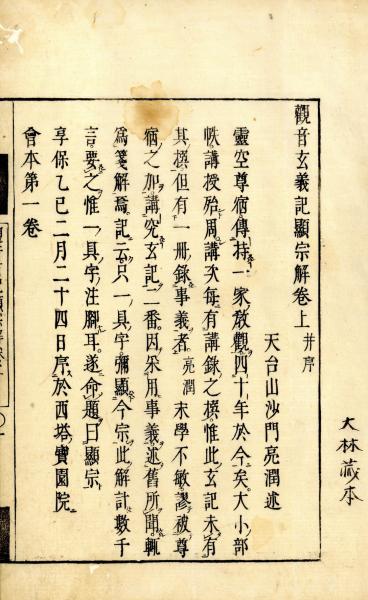 觀音玄義記顯宗解卷上 并序
天台山沙門亮潤述
靈空尊宿傳持一家教觀四十年於今矣大小部
帙講授殆周講次每有講錄之積惟此玄記未有
其積但有一冊錄事義者亮潤末學不敏謬被尊
宿之加講究玄記二番因采用事義述舊所聞輒
為箋解焉記云只一具字彌顯今宗此解計數千
言要之惟一具字注腳耳遂命題曰顯宗
享保乙巳二月二十四日序於西塔寶園院
會本第一卷
大林藏本